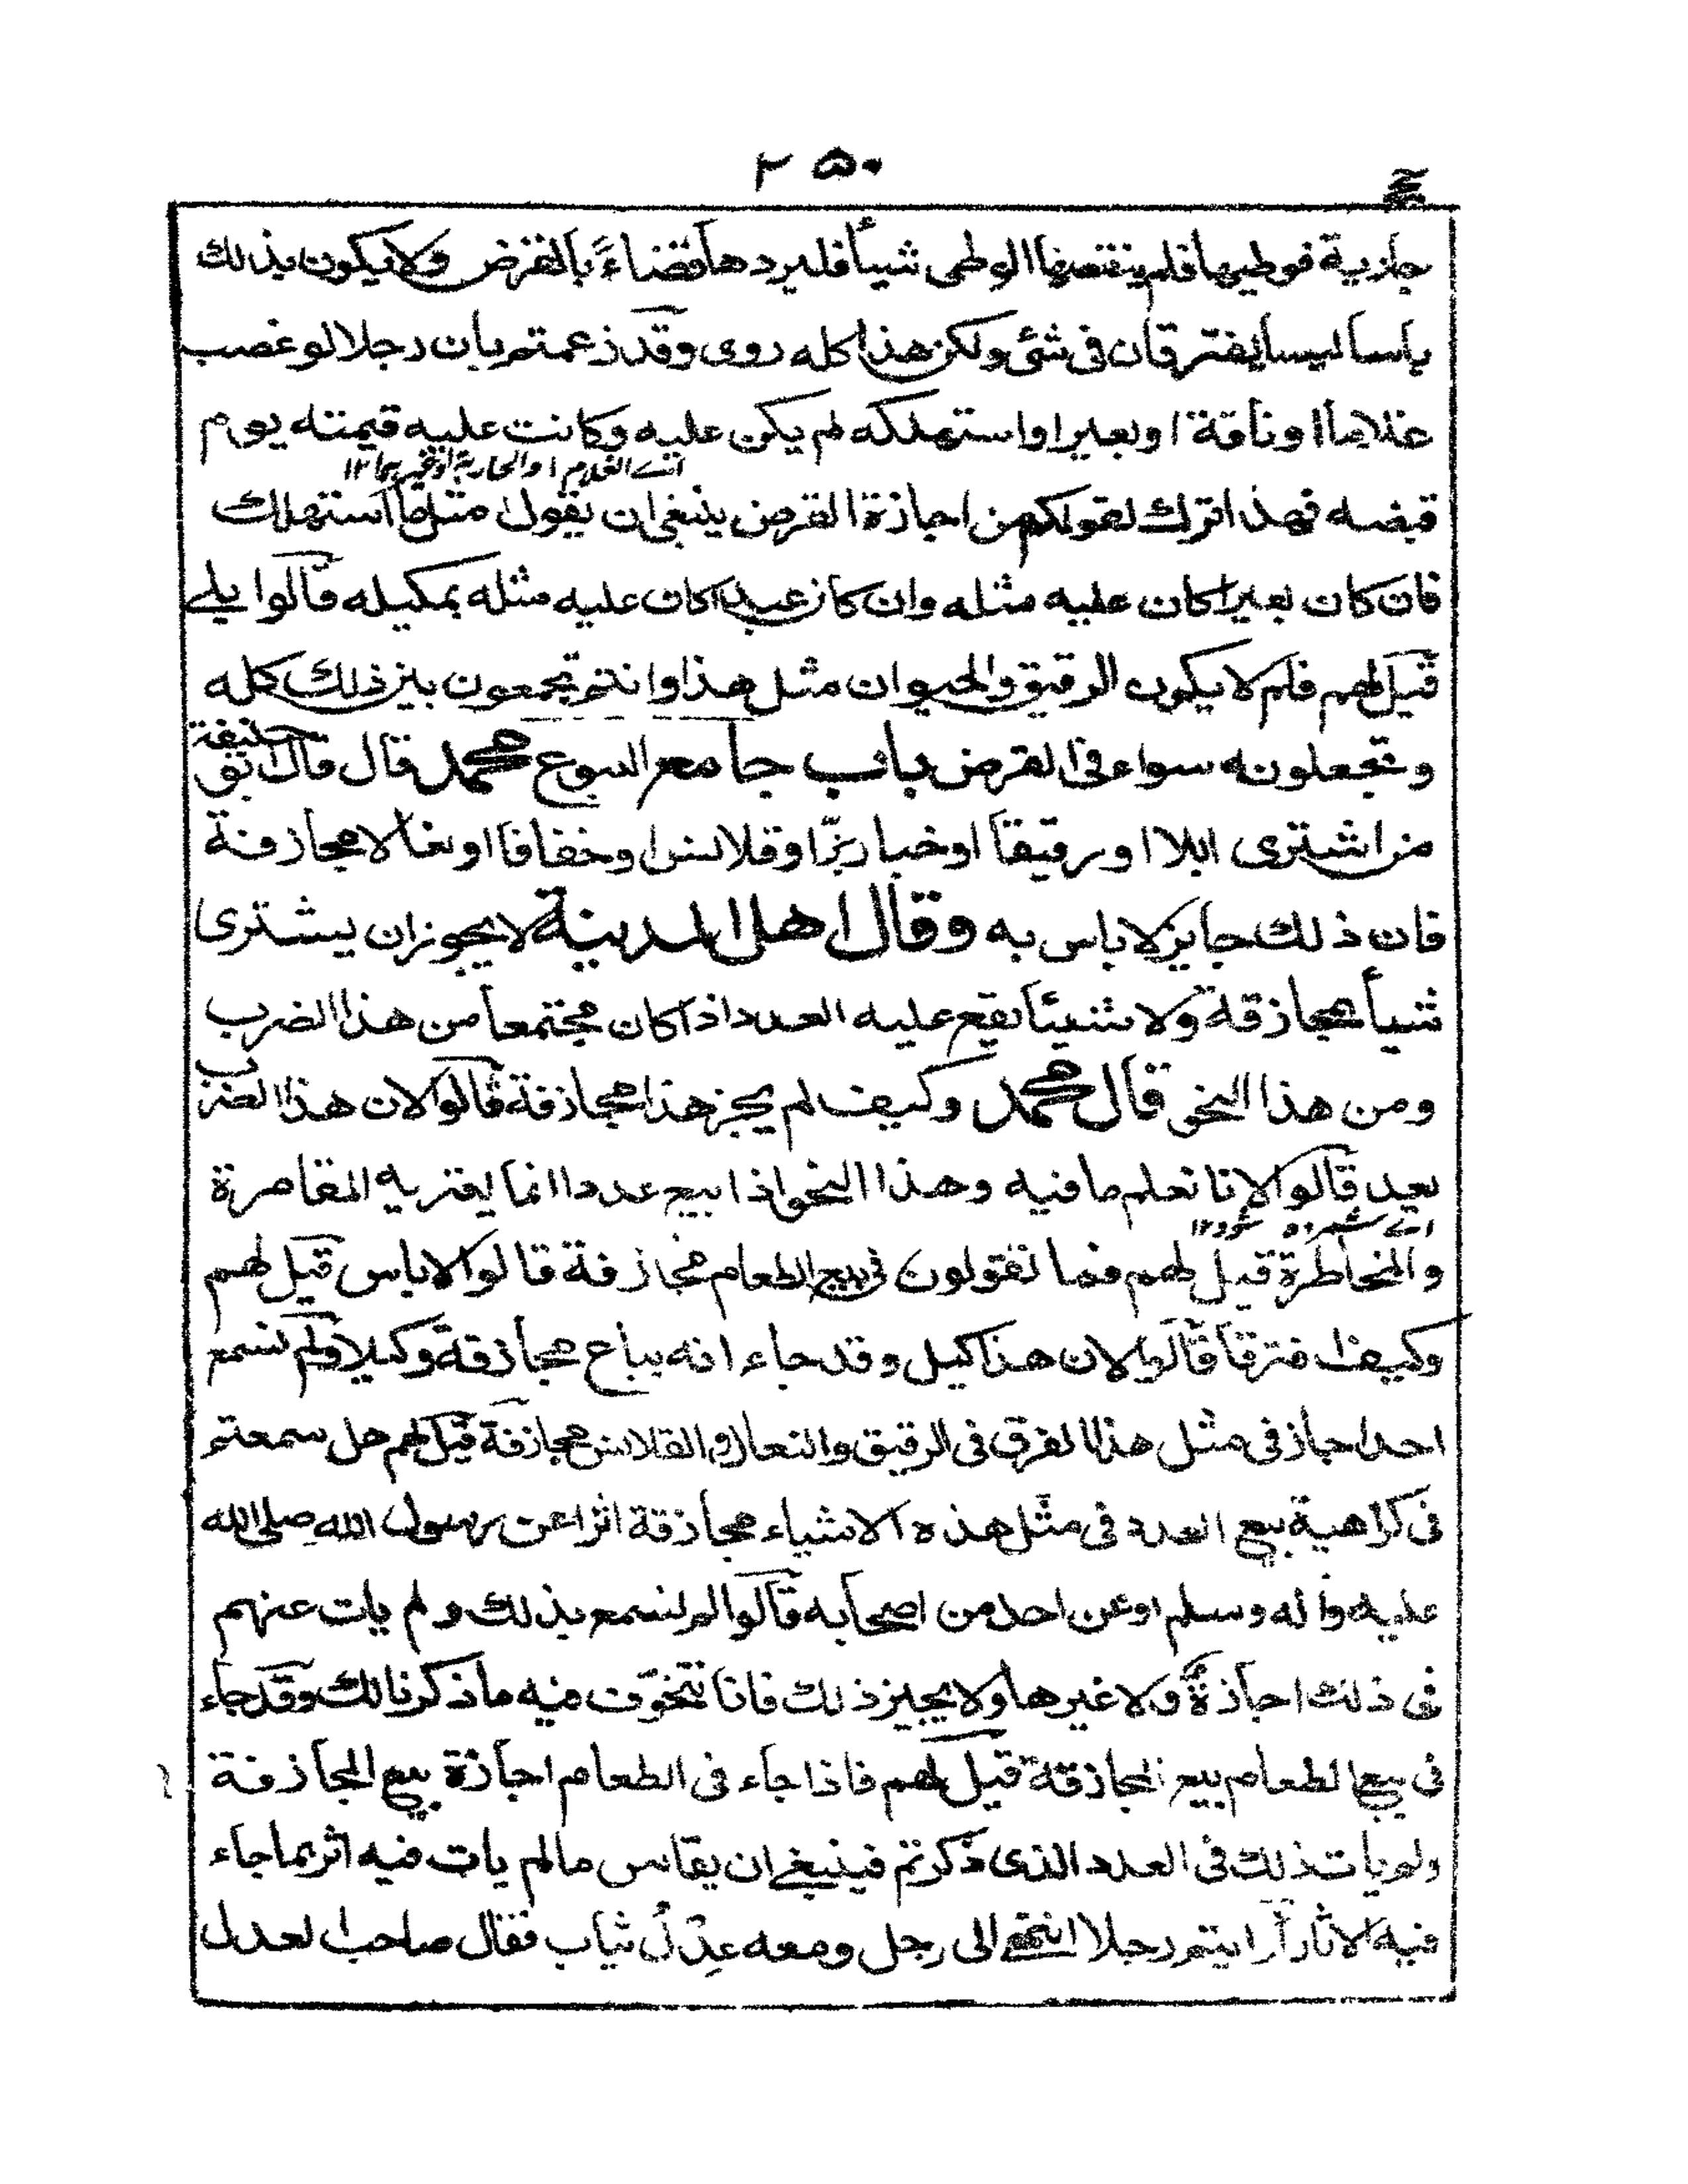 ٢٥٠
جارية فوطيها فلم ينقصها الوطى شيأ فليردها قضاءً بالقرض ولا يكون بذلك
باسا ليسا يفترقان فى شئ ولكن هذا كله روى وقد زعمتم بان رجلا لو غصب
غلاما او ناقة او بعيرا واستهلكه لم يكن عليه وكانت عليه قيمته يوم
اے الغلام او الجارية او غيرهما ١٢
قبضه فهذا اترك لقولكم من اجازة القرض ينبغى ان يقول مثل ما استهلك
فان كان بعيرا كان عليه مثله وان كان عبدا كان عليه مثله بمكيله قالوا بلے
قيل لهم فلم لا يكون الرقيق والحيوان مثل هذا وانتم تجمعون بين ذلك كله
وتجعلونه سواء فى القرض باب جامع البيوع محمد قال قال ابو حنيفة
من اشترى ابلا او رقيقا او خبا ربزّا وقلانس او خفافا او نعالا مجازفة
فان ذلك جايز لا باس به وقال اهل المدينة لا يجوز ان يشترى
شيأ مجازفة ولا شيئا يقع عليه العدد اذا كان مجتمعا من هذا الضرب
ومن هذا النحو قال محمد وكيف لم يجز هذا مجازفة قالوا لان هذا الضرب
يعد قالوا لانا نعلم ما فيه وهذا النحو اذا بيع عددا انما يعتريه المقامرة
اے شمرده شود ١٢
والمخاطرة قيل لهم فما تقولون فى بيع الطعام مجازفة قالوا لا باس قيل لهم
وكيف افترقا قالوا لان هذا كيل وقد جاء انه يباع مجازفة وكيلا ولم نسمع
احدا جاز فى مثل هذا الفرق فى الرقيق والنعال والقلانس مجازفة قيل لهم هل سمعتم
فى كراهية بيع العدد فى مثل هذه الاشياء مجازفة اثرا عن رسول الله صلى الله
عليه واله وسلم او عن احد من اصحابه قالوا لم نسمع بذلك ولم يات عنهم
فى ذلك اجازة ولا غيرها ولا يجيز ذلك فانا نتخوّف منه ما ذكرنا لك وقد جاء
فى بيع الطعام بيع المجازفة قيل لهم فاذا جاء فى الطعام اجازة بيع المجازفة
ولم يات ذلك فى العدد الذى ذكرتم فينبغے ان يقاس ما لم يات فيه اثر بما جاء
فيه الاثار أرايتم رجلا انتهى الى رجل ومعه عِدْلُ ثياب فقال صاحب العدل